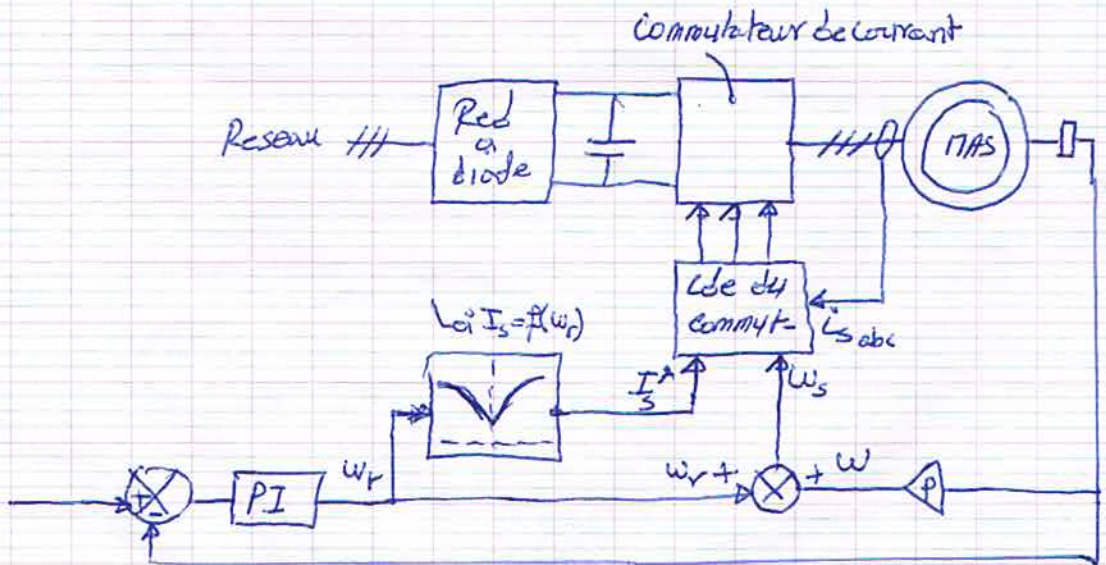 Commutateur de courant
Reseau
Red
à
diode
MAS
Cde du
commut-
is abc
Loi Is = f(ωr)
Is*
ωs
ωr
PI
ωr +
+ ω
P
+
-